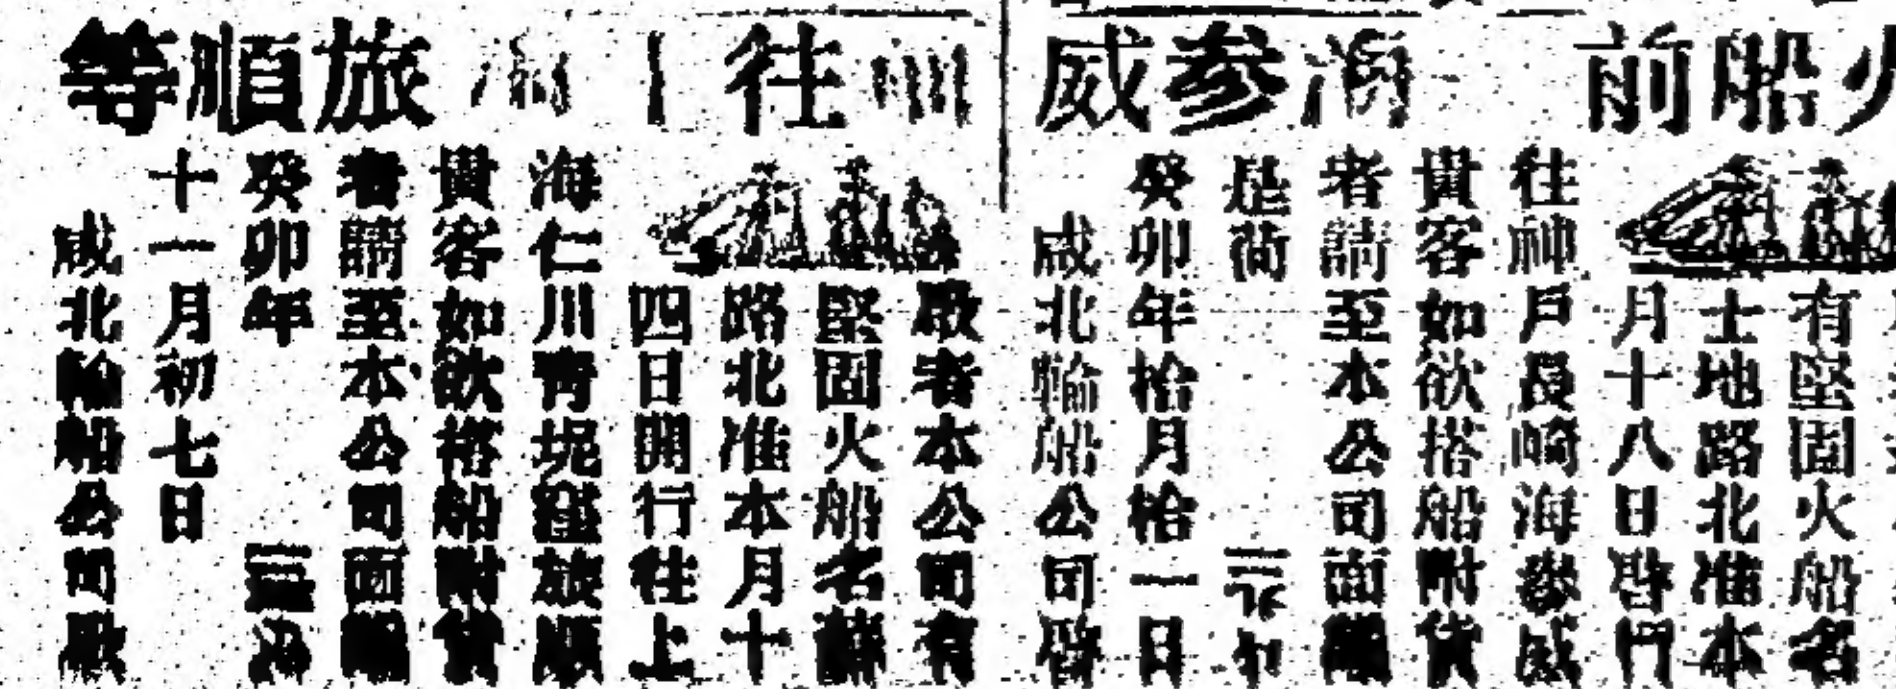 火船前海參威
有堅固火船名
士地路北准本
月十八日啓門
往神戶長崎海參威
貴客如欲搭船附貨
者請至本公司面議
是荷
癸卯年拾月拾一日
咸北輪船公司啓
往旅順等
啟者本公司有
堅固火船名
路北准本月十
四日開行往上
海仁川青坭窪旅順
貴客如欲搭船附貨
者請至本公司面議
癸卯年
十一月初七日
咸北輪船公司啟